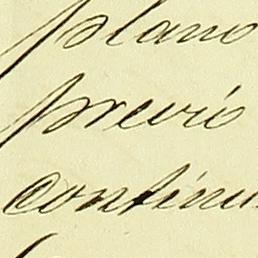 plano
previo
continu